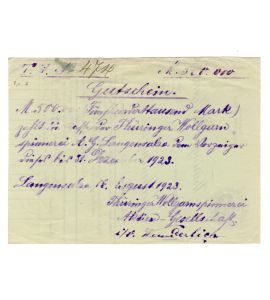 M. 500.000
Gutschein.
M. 500.000 (Fünfhunderttausend Mark)
zahlt die Thüringer Wollgarn
spinnerei A.G. Langensalza dem Vorzeiger
dieses bis 31. Dezember 1923.
Langensalza August 1923.
Thüringer Wollgarnspinnerei
Aktien-Gesellschaft